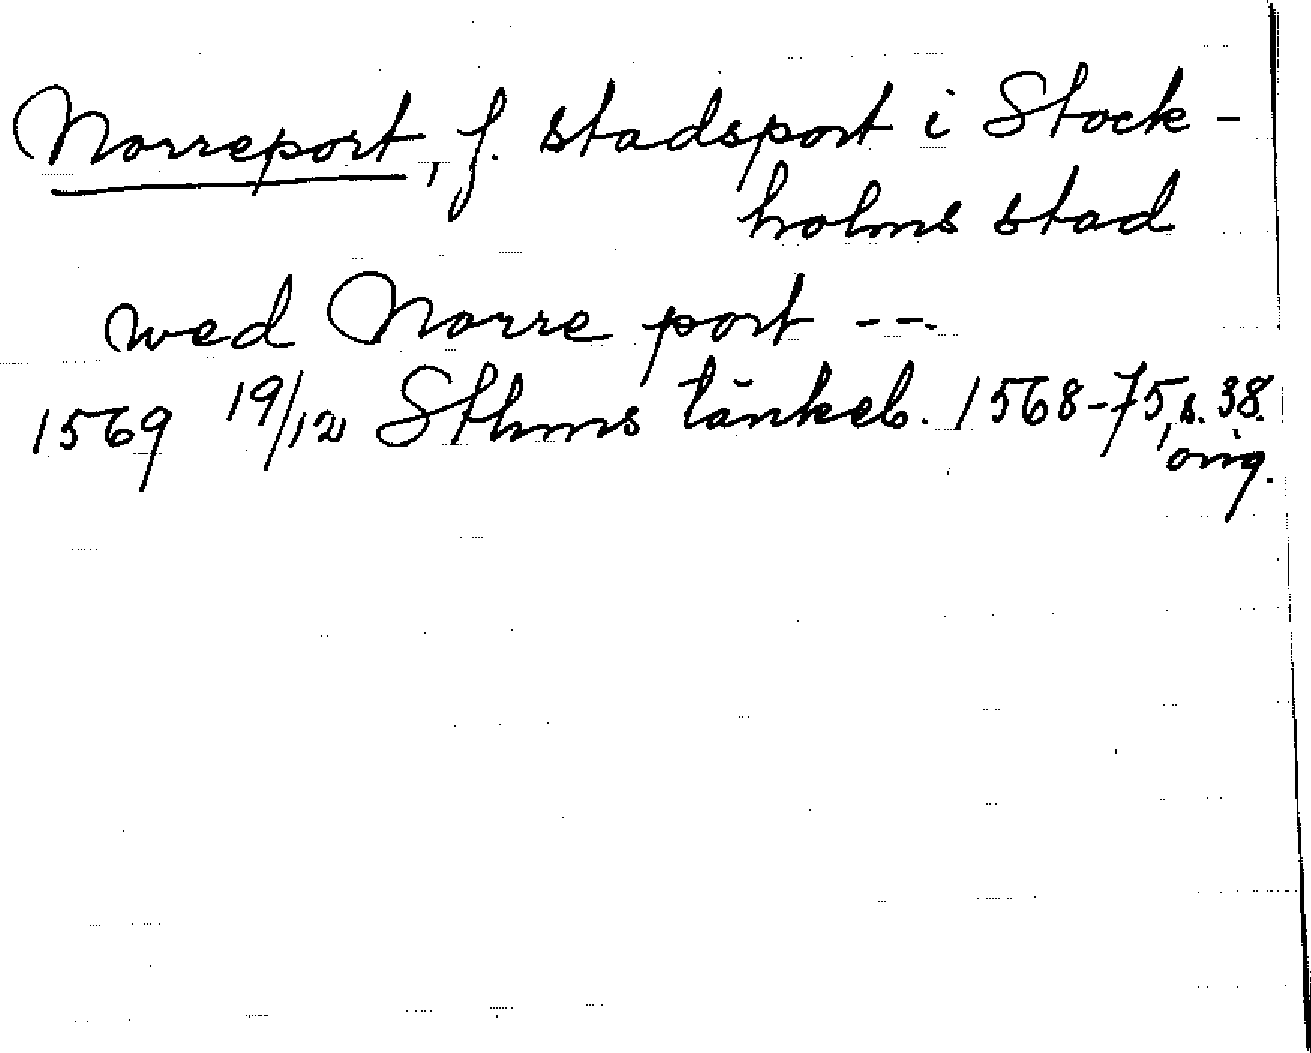 Norreport, f. stadsport i Stock-
holms stad
wed Norre port ---
1569 19/12 Sthms tänkeb. 1568-75, s. 38.
orig.